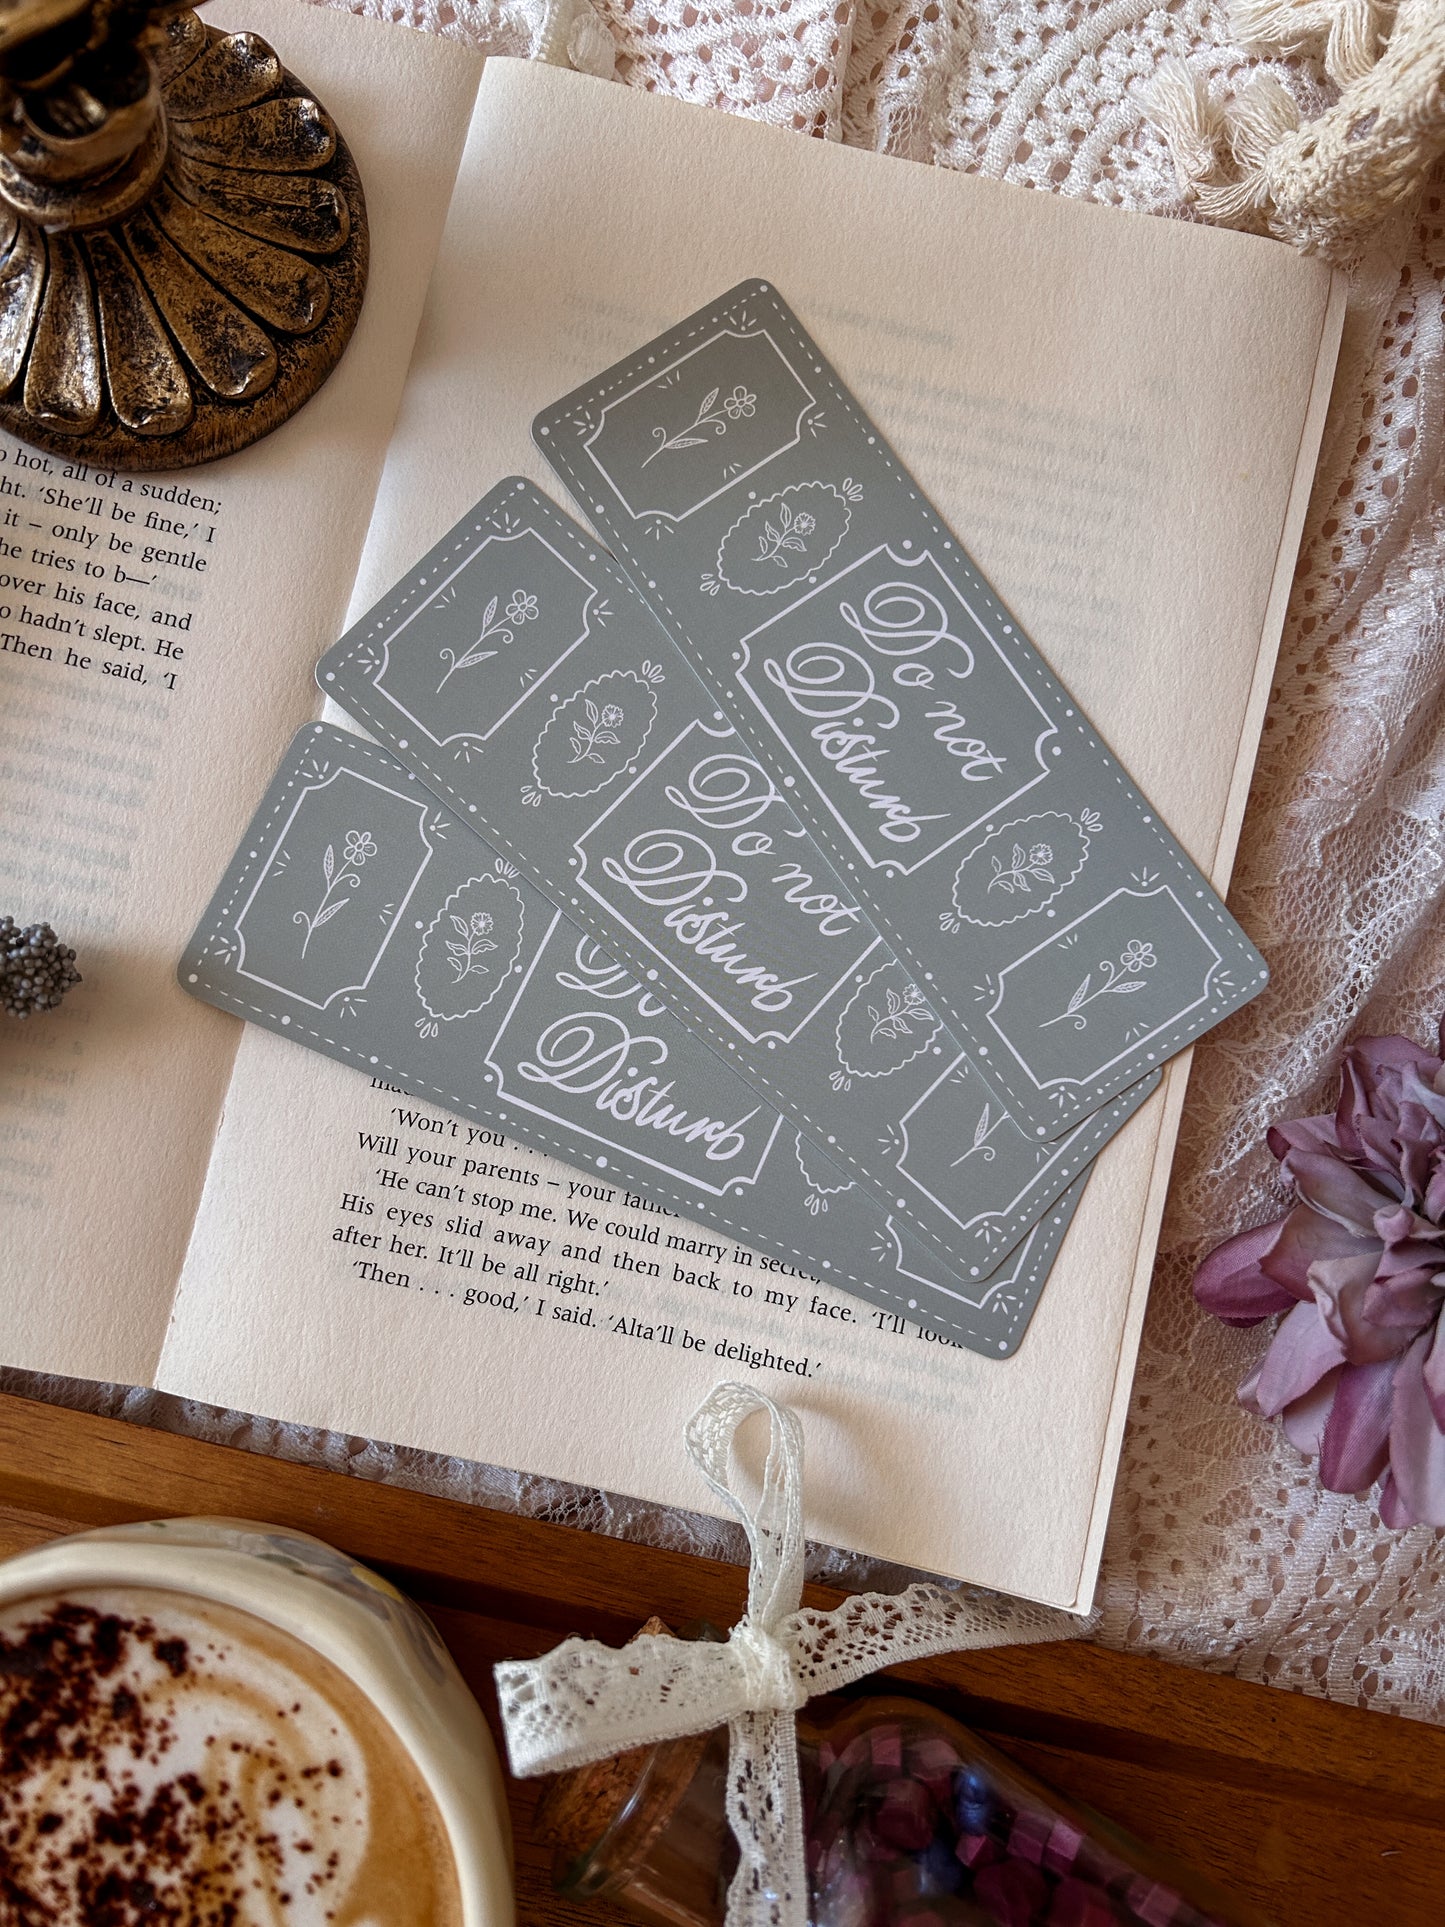 hot, all of a sudden;
'She'll be fine,' I
it – only be gentle
he tries to b—'
over his face, and
hadn't slept. He
Then he said, 'I
Do not
Disturb
Do not
Disturb
Do
Disturb
'Won't you . .
Will your parents – your father
'He can't stop me. We could marry in secret,
His eyes slid away and then back to my face. 'I'll look
after her. It'll be all right.'
'Then . . . good,' I said. 'Alta'll be delighted.'